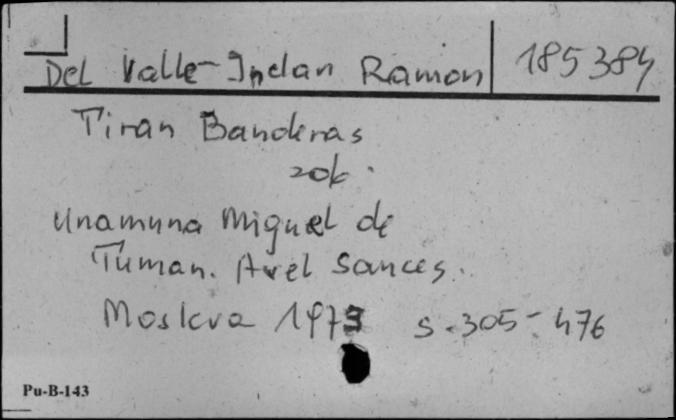 Del Valle-Inclan Ramon 185384
Tiran Banderas
Unamuna Miguel de
Tuman. Avel Sances.
Moskva 1973 s.305-476
Pu-B-143